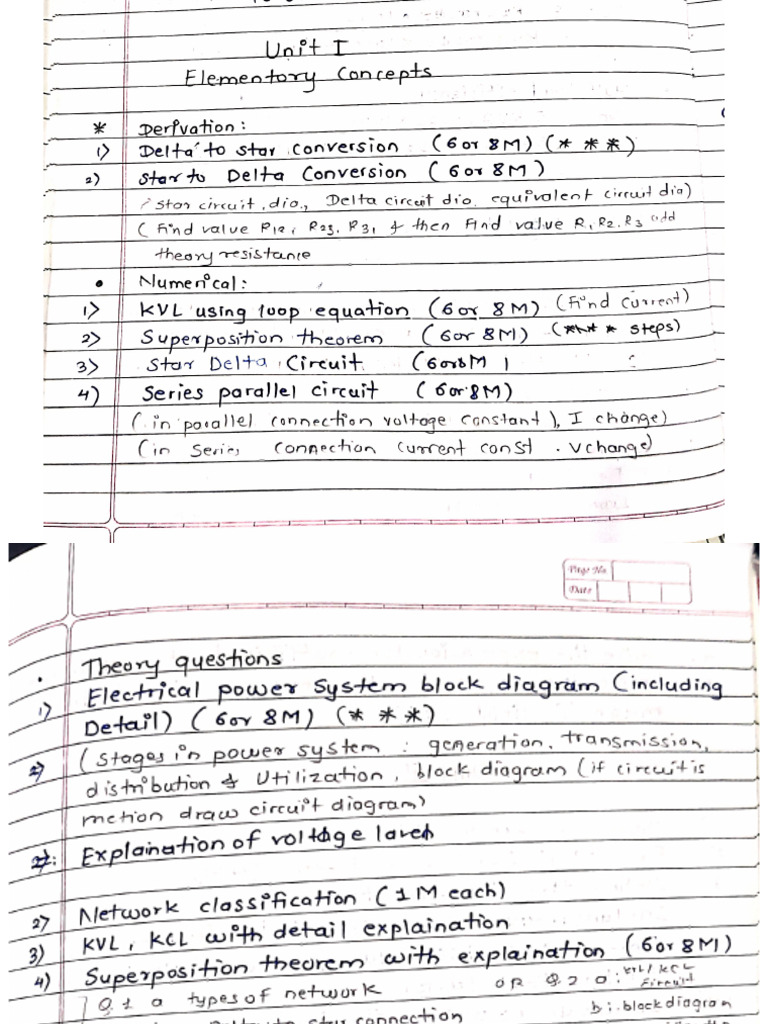 Unit I
Elementory Concepts
* Derivation:
1) Delta to star conversion (6 or 8M) (* * *)
2) Star to Delta Conversion (6 or 8M)
(Star circuit dia., Delta circuit dia. equivalent circuit dia)
(Find value R12, R23, R31 & then Find value R1 R2. R3 add
theory resistance
• Numerical:
1) KVL using loop equation (6 or 8M) (find current)
2) Superposition theorem (6 or 8M) (*** * steps)
3) Star Delta Circuit (6 or 8M)
4) Series parallel circuit (6 or 8M)
(in parallel connection voltage constant), I change)
(in Series connection current const. V change)
Page No.
Date
• Theory questions
1) Electrical power system block diagram (including
Detail) (6 or 8M) (* * *)
2) (stages in power system : generation, transmission,
distribution & Utilization, block diagram (if circuit is
mction draw circuit diagram)
Explaination of voltage
2) Network classification (1M each)
3) KVL, KCL with detail explaination
4) Superposition theorem with explaination (6 or 8M)
Q.1 a types of network OR Q.2 a: KVL/KCL
b:. block diagram
to star connection